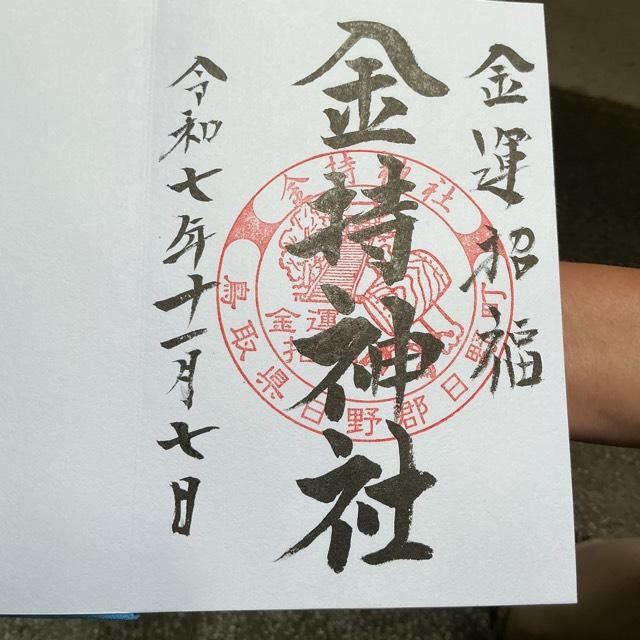 金運招福
金持神社
令和七年十一月七日
金持神社
鳥取県日野郡日野町
金運
招